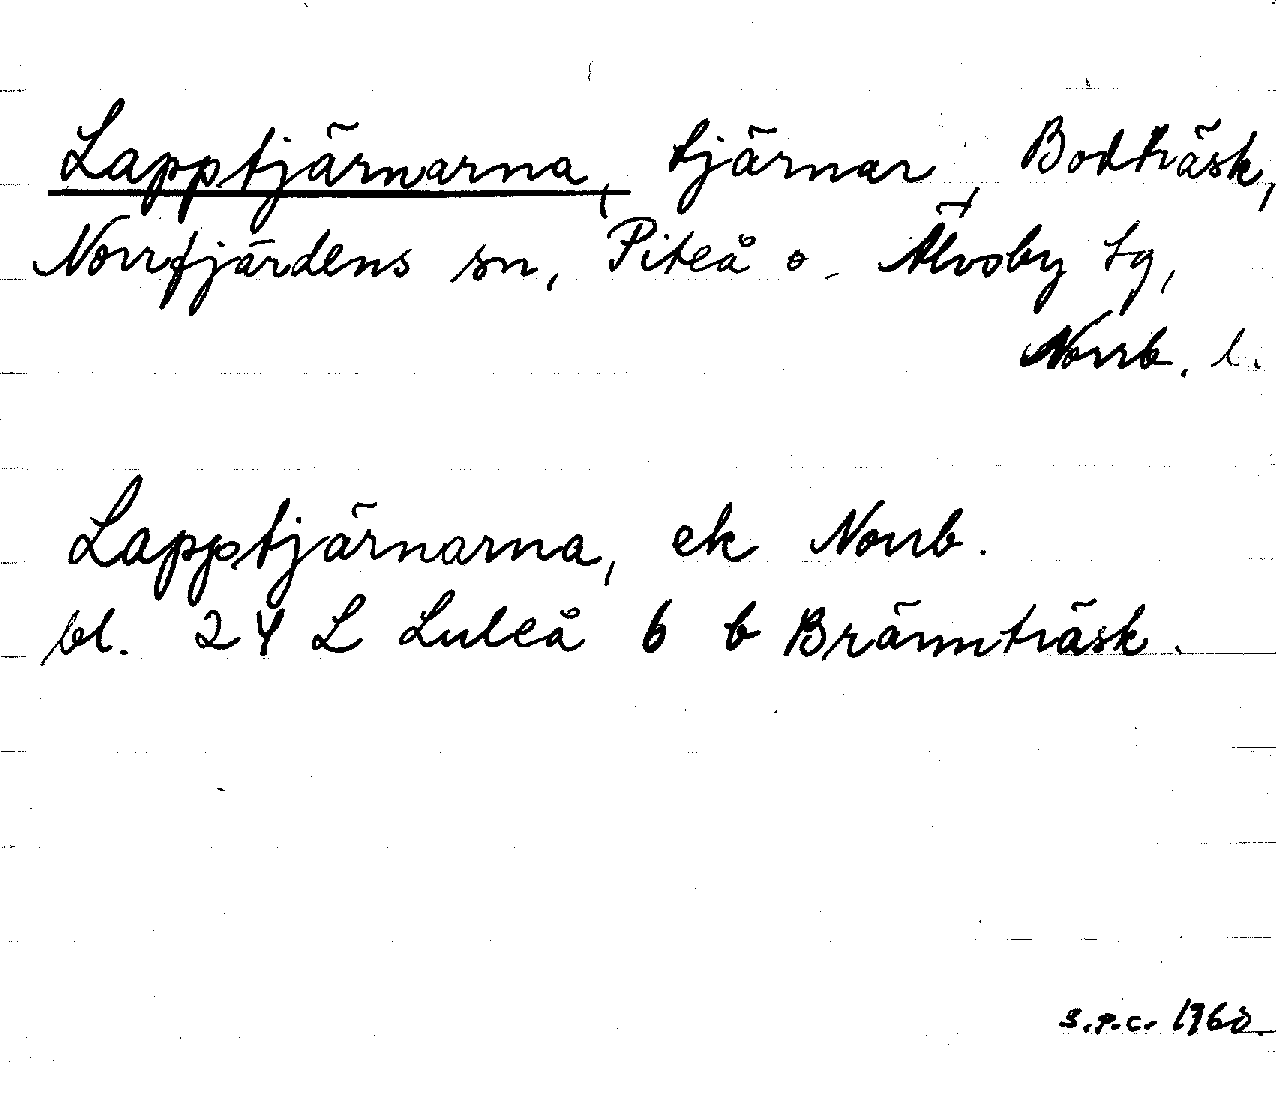 Lapptjärnarna, tjärnar, Bodträsk,
Norrfjärdens sn, Piteå o. Älvsby tg,
Norrb. l.
Lapptjärnarna, ek Norrb.
bl. 24 L Luleå 6 b Brännträsk.
S.P.C. 1968